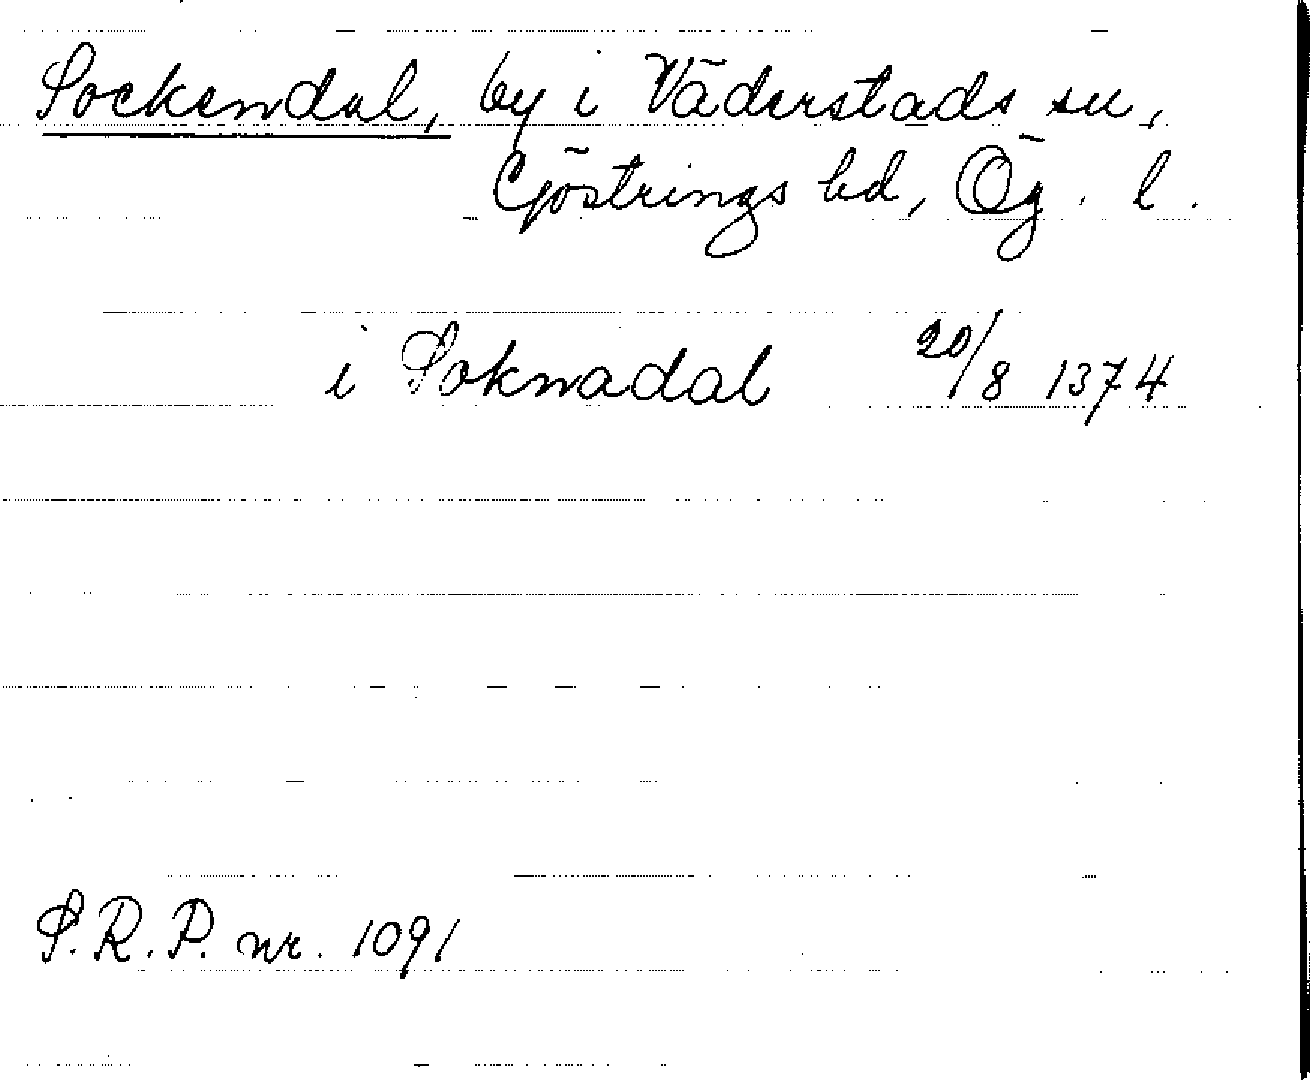 Sockendal, by i Väderstads sn,
Göstrings hd, Ög. l.
i Soknadal 20/8 1374
S.R.P. nr. 1091